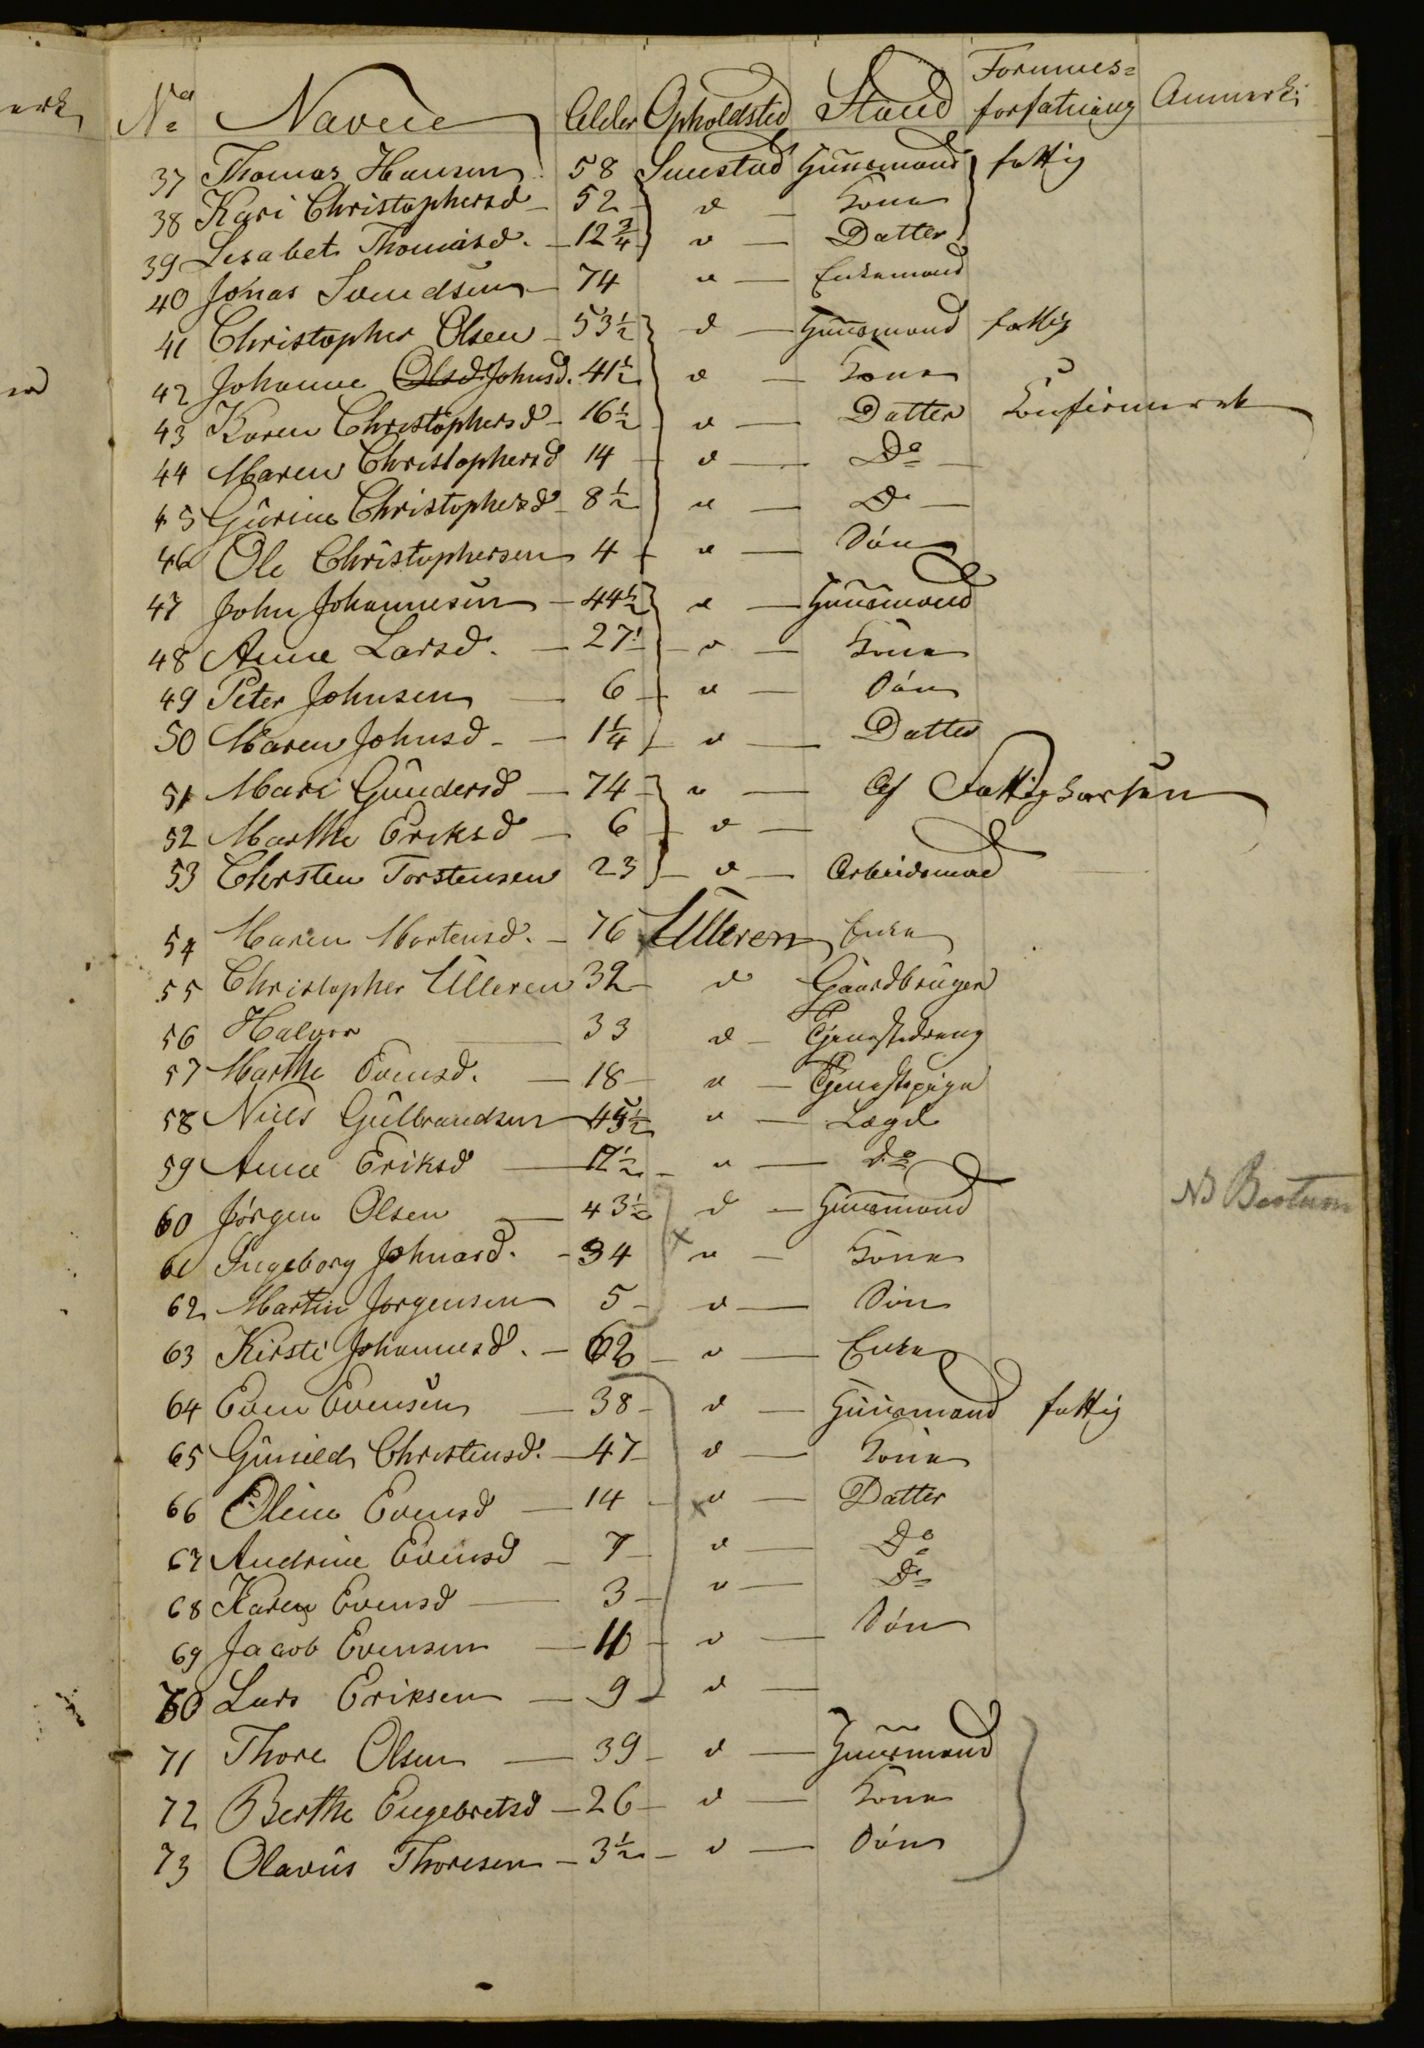 No Navne Alder Opholdsted Stand Formues=forfatning Anmærk:
37 Thomas Hansen 58 Smestad Huusmand fattig
38 Kari Christophersd 52 d Kone
39 Lisabet Thomasd. 12 3/4 d Datter
40 Jónas Svendsen 74 d Enkemand
41 Christopher Olsen 53 1/2 d Huusmand fattig
42 Johanne Olsd. Johnsd. 41 1/2 d Kone
43 Karen Christophersd 16 1/2 d Datter Confirmeret
44 Maren Christophersd 14 d Do
45 Gurine Christophersd 8 1/2 d Do
46 Ole Christophersen 4 d Són
47 John Johannesen 44 1/2 d Huusmand
48 Anne Larsd. 27 d Kone
49 Peter Johnsen 6 d Són
50 Maren Johnsd 1 1/4 d Datter
51 Mari Gundersd 74 d Af Fattigkassen
52 Marthe Eriksd 6 d
53 Chersten Torstensen 23 d Arbeidsmand
54 Maren Mortensd. 76 Ulleren Enke
55 Christopher Ulleren 32 d Gaardbruger
56 Halvor 33 d Tjenestedreng
57 Marthe Evensd. 18 d Tjenestepige
58 Niels Gulbrandsen 45 1/2 d Lægd
59 Anne Eriksd 12 1/2 d do
60 Jórgen Olsen 43 1/2 d Huusmand NB Bæstum
61 Ingeborg Johnasd. 34 d Kone
62 Martin Jorgensen 5 d Són
63 Kirsti Johannesd. 62 d Enke
64 Even Evensen 38 d Huusmand fattig
65 Gunild Christensd. 47 d Kone
66 Oline Evensd 14 d Datter
67 Andrine Evensd 7 d Do
68 Karen Evensd 3 d Do
69 Jacob Evensen d Són
70 Lars Eriksen 9 d
71 Thore Olsen 39 d Huusmand
72 Berthe Engebretsd 26 d Kone
73 Olavus Thoresen 3 1/2 d Són